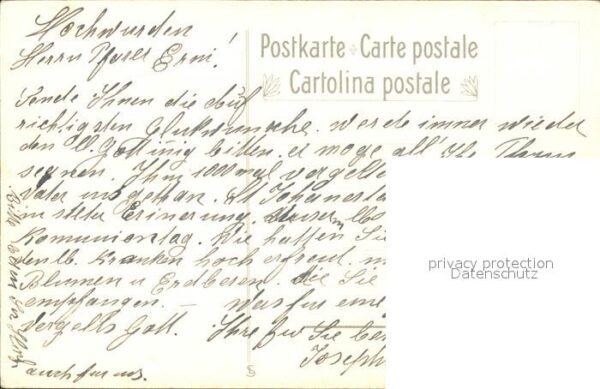 Hochwürden
Herrn Pfarer Erni!
Postkarte Carte postale
Cartolina postale
Sende Ihnen die auf
richtigsten Glükwünsche. werde immer wieder
den ll. Gott innig bitten, er möge all' Ihr Thun
segnen. Ihm 1000 mal vergelts
Vater uns gethan. At Johanesta
in steter Erinerung. unser lbs
Kommuniontag. Die hatten Sie
den lb. Kranken hoch erfreut. m
Blumen u Erdberen. die Sie
empfangen. — Was für eine
Vergelts Gott. Ihre für Sie be
Joseph
Bitte beten Sie
auch für uns.
privacy protection
Datenschutz